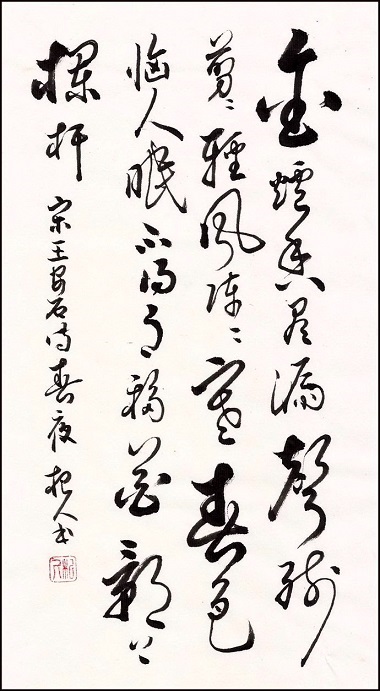 金爐香盡漏聲殘
剪々輕風陣々寒春色
惱人眠不得月移花影上
欄杆 宋王安石詩春夜 人書